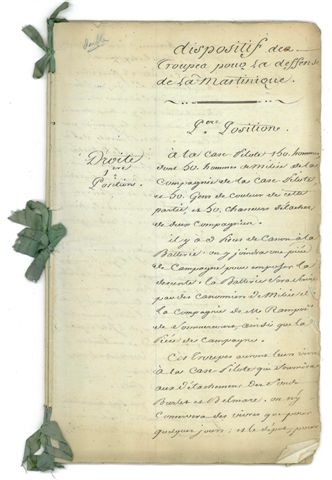 double
dispositif des
Troupes pour la deffense
de la Martinique.
1.ere Position.
Droite
1ere
Position
à la case Pilote 150. hommes
dont 50 hommes de milice de la
Compagnie de la case Pilote
et 50. Gens de Couleur de cette
partie, et 50. chasseurs détachés
de deux Compagnies.
il y a 3 Pieces de Canon à la
Batterie. on y joindra une pièce
de Campagne pour empescher la
descente. la Batterie sera servie
par des canonniers de Milice et
la Compagnie de Mr
de ainsi que la
Pièce de Campagne.
Ces Troupes auront leurs vivres
à la case Pilote qui fournira
aux détachements des
et Belmare. on n'y
Conservera des vivres que pour
quelques jours; et le dépot, pour